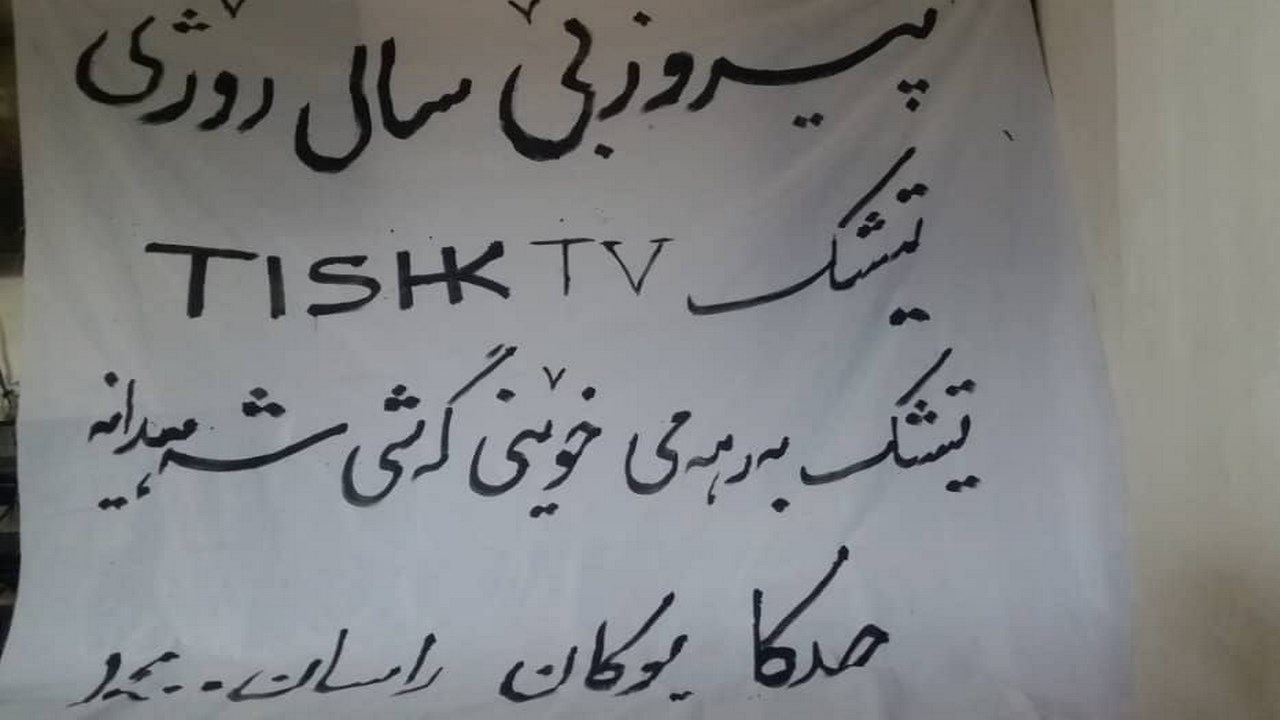 پیروز بێ سال رۆژی
تیشک TISHK TV
تیشک بەرهەمی خوێنی گەشی شەهیدانە
حدکا بوکان راسان